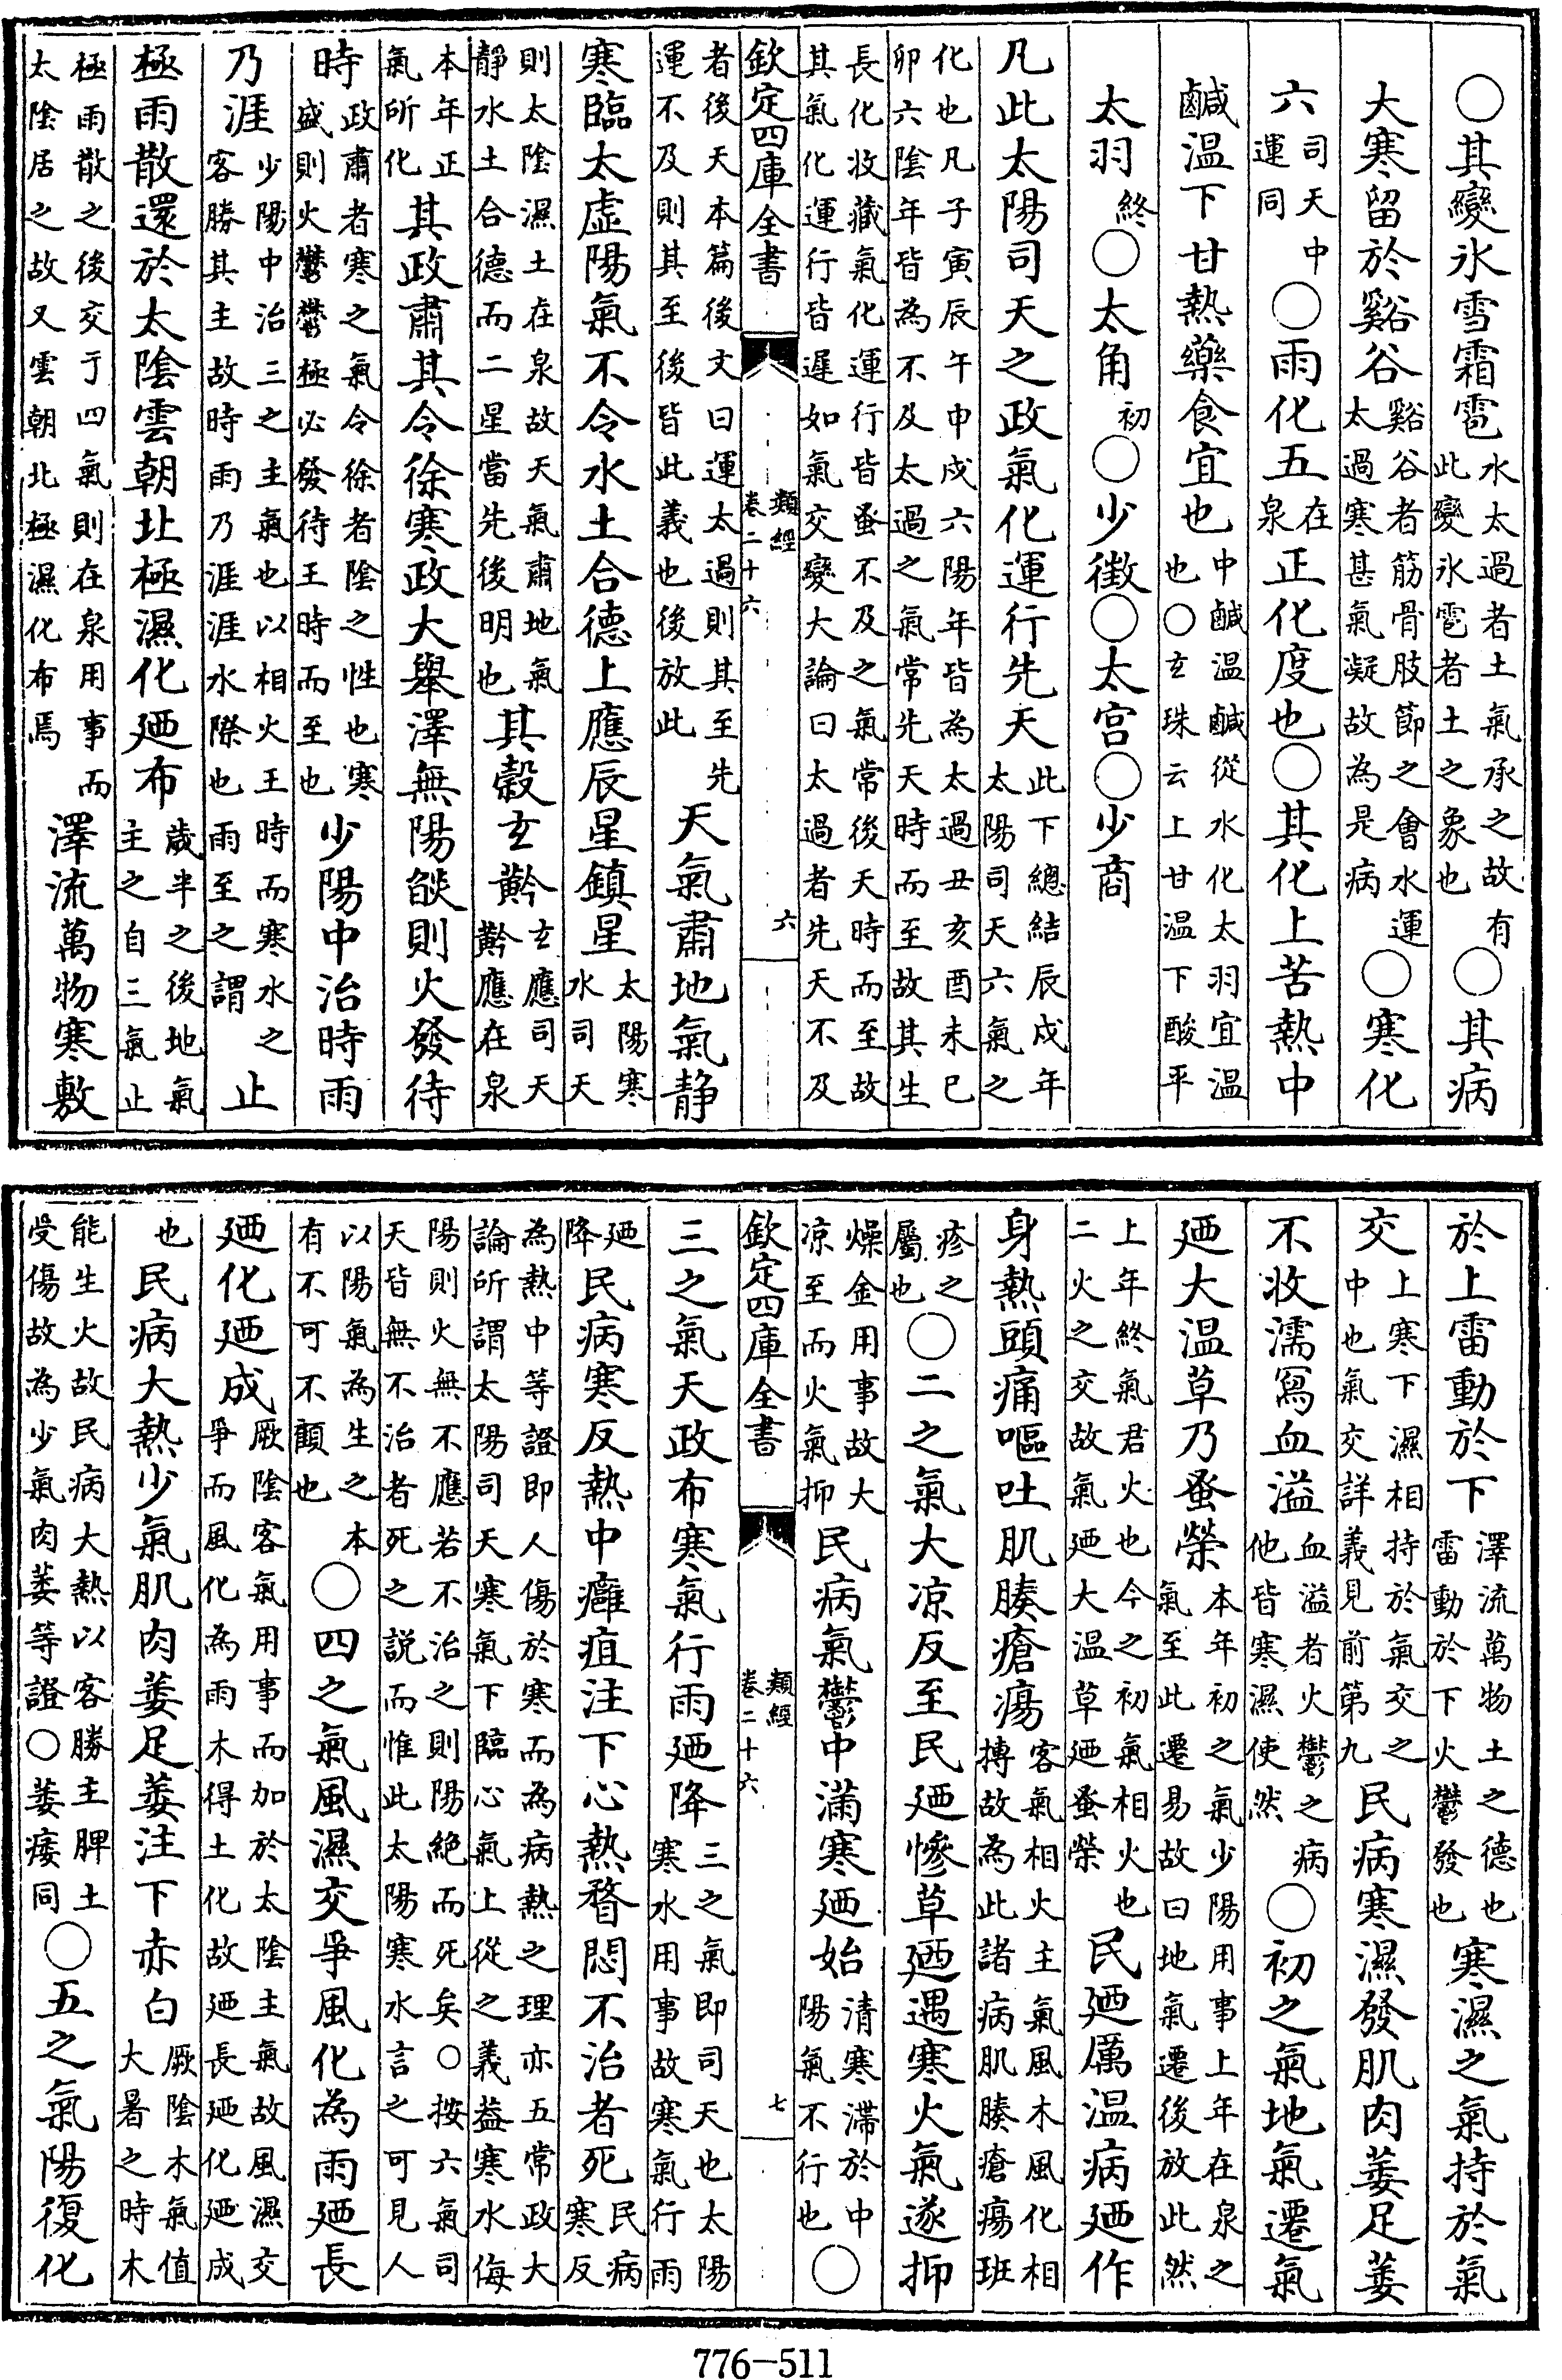 ○其變氷雪霜雹水太過者土氣承之故有此變氷雹者土之象也○其病
大寒留於谿谷谿谷者筋骨肢節之會水運太過寒甚氣凝故為是病○寒化
六司天中運同○雨化五在泉正化度也○其化上苦熱中
鹹温下甘熱藥食宜也中鹹温鹹從水化太羽宜温也○玄珠云上甘温下酸平
太羽終○太角初○少徵○太宫○少商
凡此太陽司天之政氣化運行先天此下總結辰戌年太陽司天六氣之
化也凡子寅辰午申戌六陽年皆為太過丑亥酉未已卯六陰年皆為不及太過之氣常先天時而至故其生
長化收藏氣化運行皆蚤不及之氣常後天時而至故其氣化運行皆遲如氣交變大論曰太過者先天不及
欽定四庫全書 類經卷二十六 六
者後天本篇後文曰運太過則其至先運不及則其至後皆此義也後放此天氣肅地氣静
寒臨太虚陽氣不令水土合德上應辰星鎮星太陽寒水司天
則太陰濕土在泉故天氣肅地氣靜水土合德而二星當先後明也其榖玄黅玄應司天黅應在泉
本年正氣所化其政肅其令徐寒政大舉澤無陽燄則火發待
時政肅者寒之氣令徐者陰之性也寒盛則火鬱鬱極必發待王時而至也少陽中治時雨
乃涯少陽中治三之主氣也以相火王時而寒水之客勝其主故時雨乃涯涯水際也雨至之謂止
極雨散還於太陰雲朝北極濕化廼布歳半之後地氣主之自三氣止
極雨散之後交于四氣則在泉用事而太陰居之故又雲朝北極濕化布焉澤流萬物寒敷
於上雷動於下澤流萬物土之德也雷動於下火鬱發也寒濕之氣持於氣
交上寒下濕相持於氣交之中也氣交詳義見前第九民病寒濕發肌肉萎足萎
不收濡寫血溢血溢者火鬱之病他皆寒濕使然○初之氣地氣遷氣
廼大温草乃蚤榮本年初之氣少陽用事上年在泉之氣至此遷易故曰地氣遷後放此然
上年終氣君火也今之初氣相火也二火之交故氣廼大温草廼蚤榮民廼厲温病廼作
身熱頭痛嘔吐肌腠瘡瘍客氣相火主氣風木風化相搏故為此諸病肌腠瘡瘍班
疹之屬也○二之氣大凉反至民廼慘草廼遇寒火氣遂抑
燥金用事故大凉至而火氣抑民病氣鬱中滿寒廼始清寒滯於中陽氣不行也○
欽定四庫全書 類經卷二十六 七
三之氣天政布寒氣行雨廼降三之氣即司天也太陽寒水用事故寒氣行雨
廼降民病寒反熱中癰疽注下心熱瞀悶不治者死民病寒反
為熱中等證即人傷於寒而為病熱之理亦五常政大論所謂太陽司天寒氣下臨心氣上從之義葢寒水侮
陽則火無不應若不治之則陽絶而死矣○按六氣司天皆無不治者死之説而惟此太陽寒水言之可見人
以陽氣為生之本有不可不顧也○四之氣風濕交爭風化為雨廼長
廼化廼成厥陰客氣用事而加於太陰主氣故風濕交爭而風化為雨木得土化故廼長廼化廼成
也民病大熱少氣肌肉萎足萎注下赤白厥陰木氣值大暑之時木
能生火故民病大熱以客勝主脾土受傷故為少氣肉萎等證○萎痿同○五之氣陽復化
776-511